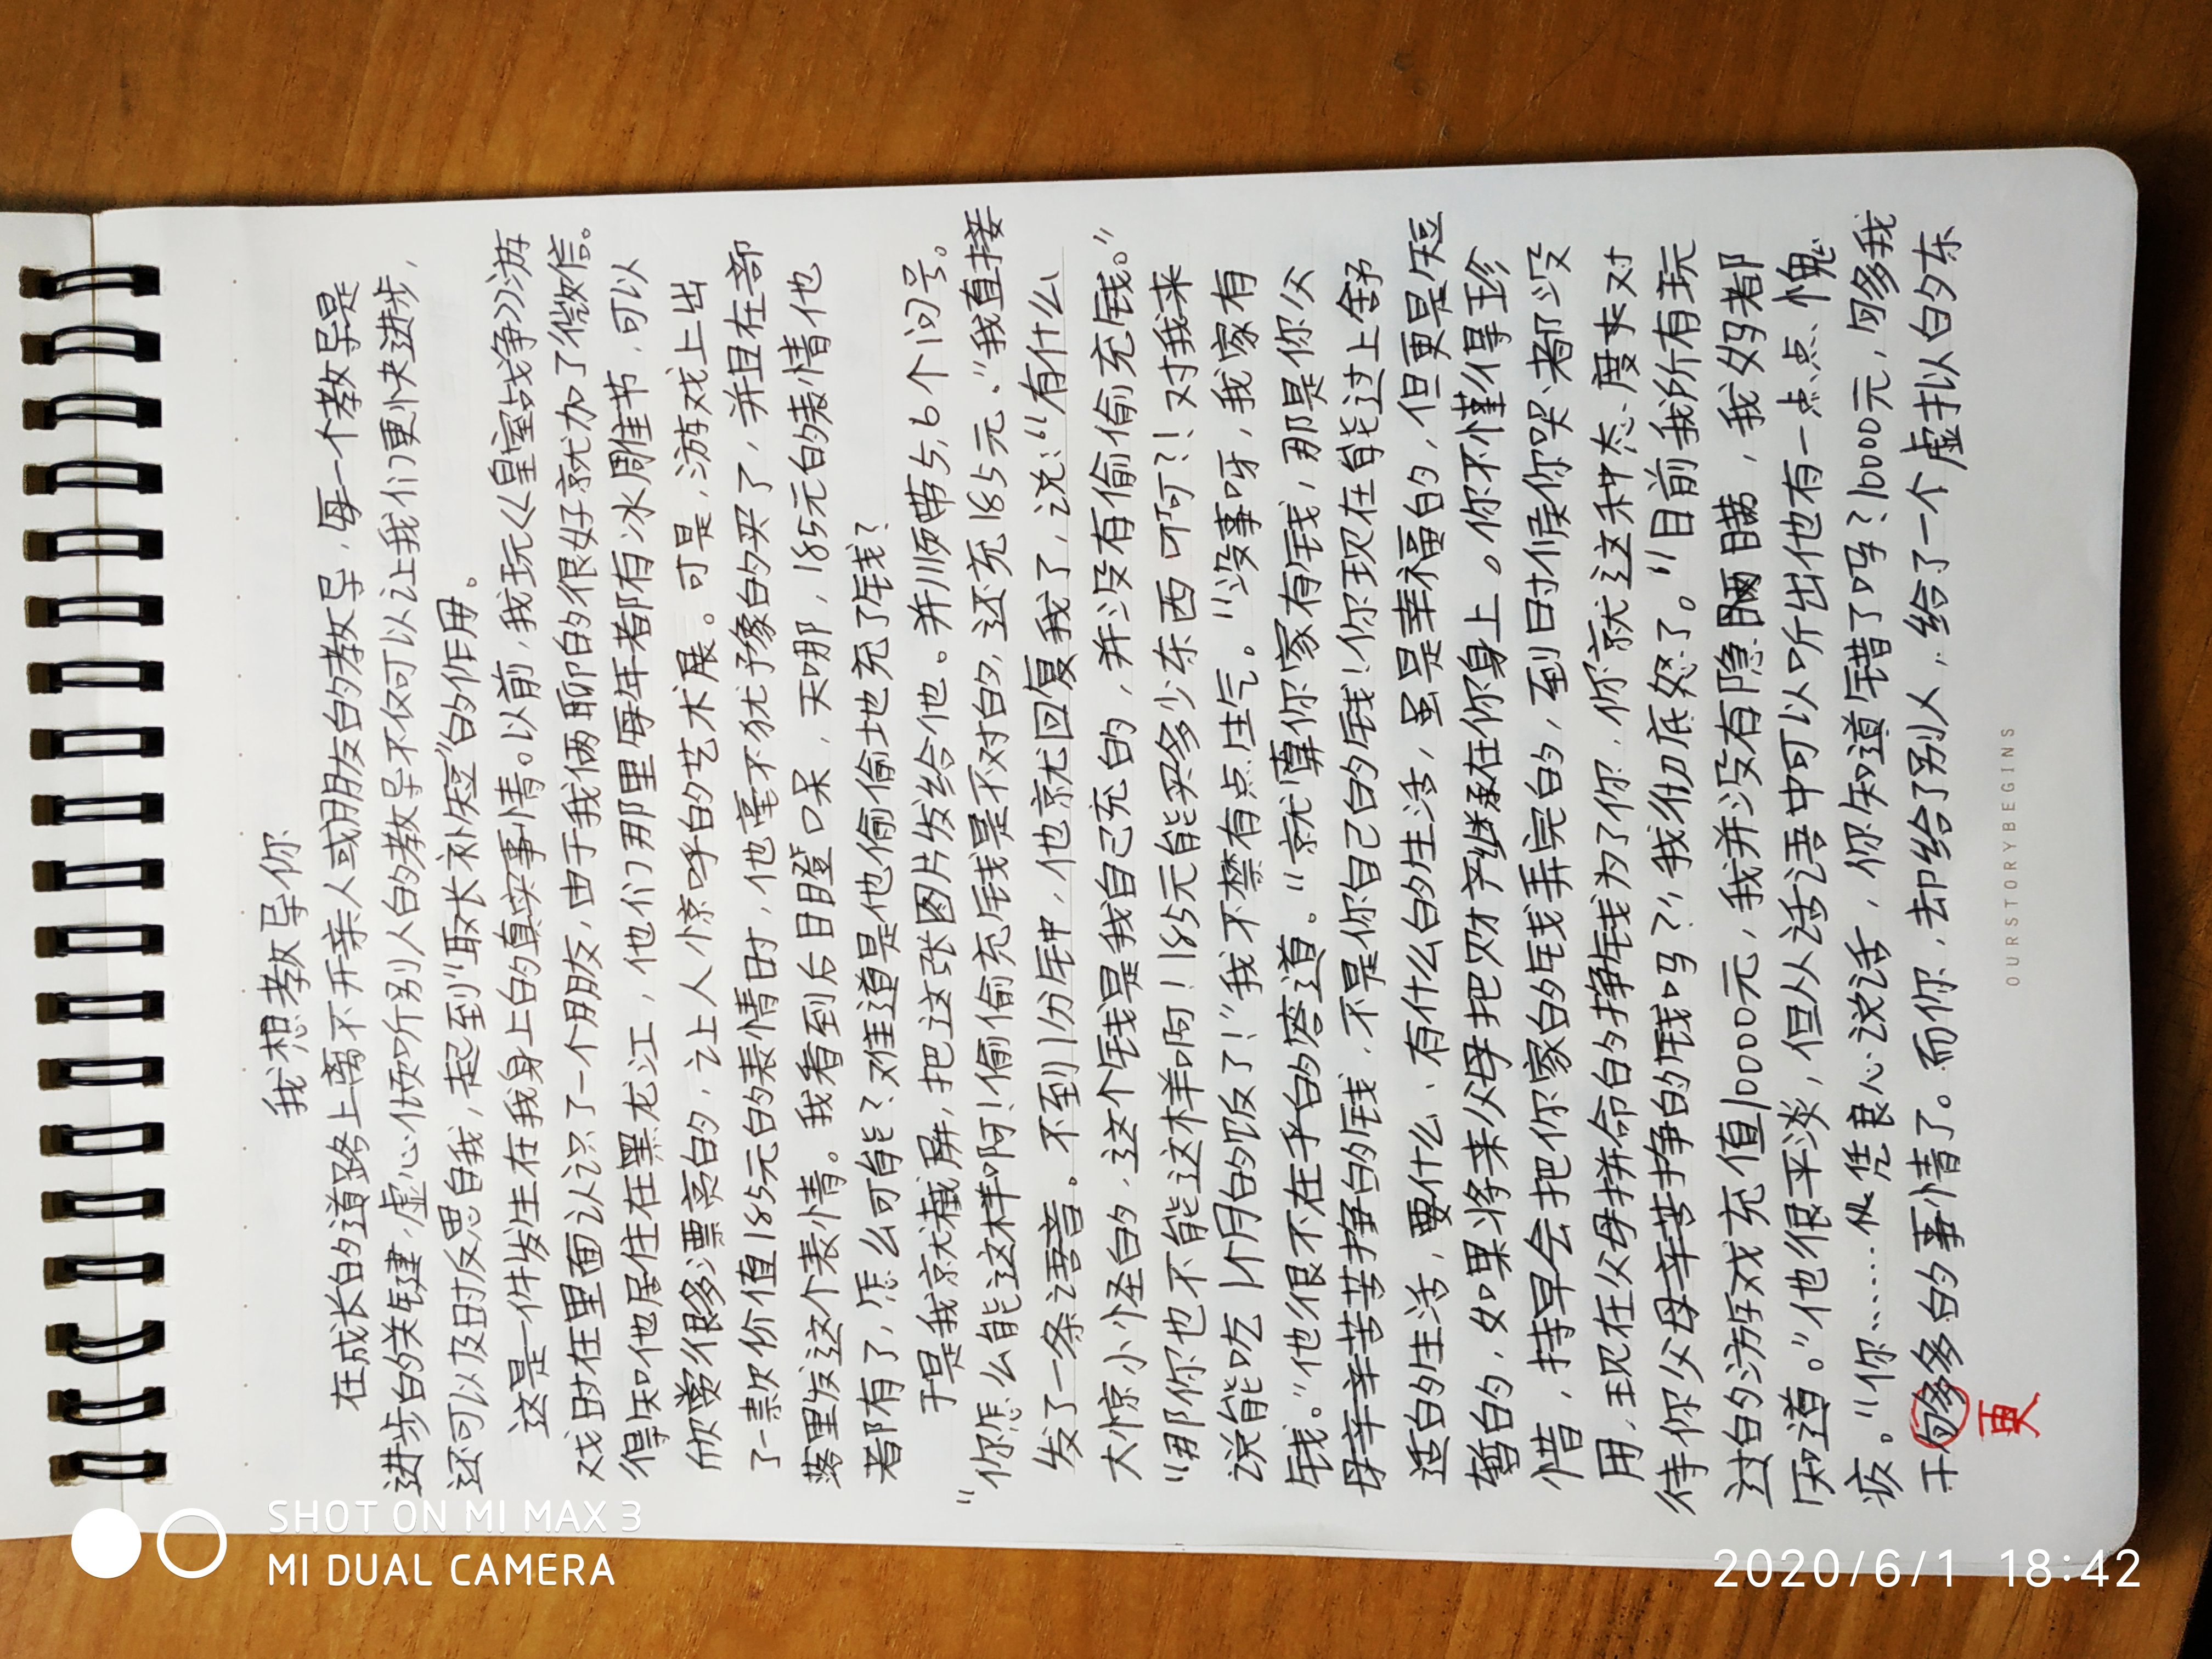 我想教导你
在成长的道路上离不开亲人或朋友的教导，每一个教导是
进步的关键，虚心倾听别人的教导不仅可以让我们更快进步，
还可以及时反思自我，起到“取长补短”的作用。
这是一件发生在我身上的真实事情。以前，我玩《皇室战争》游
戏时在里面认识了一个朋友，由于我俩聊的很好就加了微信。
得知他居住在黑龙江，他们那里每年都有冰雕佳节，可以
欣赏很多漂亮的，让人惊呼的艺术展。可是，游戏上出
了一款价值185元的表情时，他毫不犹予豫的买了，并且在部
落里发这个表情。我看到后目瞪口呆，天哪，185元的表情他
都有了，怎么可能？难道是他偷偷地充了钱？
于是我就截屏，把这张图片发给他。并顺带5,6个问号。
“你怎么能这样啊！偷偷充钱是不对的，还充185元。”我直接
发了一条语音。不到1分钟，他就回复我了，说：“有什么
大惊小怪的，这个钱是我自己充的，并没有偷偷充钱。”
“那你也不能这样啊！185元能买多少东西啊？！对我来
说能吃1个月的饭了！”我不禁有点生气。“没事呀，我家有
钱。”他很不在乎的答道。“就算你家有钱，那是你父
母辛辛苦苦挣的钱，不是你自己的钱！你现在能过上舒
适的生活，要什么，有什么的生活，虽是幸福的，但更是短
暂的，如果将来父母把财产继承在你身上。你不懂得珍
惜，持早会把你家的钱弄完的，到时候你哭都没
用，现在父母拼命的挣钱为了你，你就这种态度来对
待你父母辛苦挣的钱吗？”我彻底怒了。“目前我所有玩
过的游戏充值10000元，我并没有隐瞒，我妈都
知道。”他很平淡，但从话语中可以听出他有一点点愧
疚。“你……凭良心说话，你知道错了吗？10000元，够多我
干够多的事情了。而你，却给了别人，给了一个虚拟的东
更
OURSTORYBEGINS
SHOT ON MI MAX 3
MI DUAL CAMERA
2020/6/1 18:42